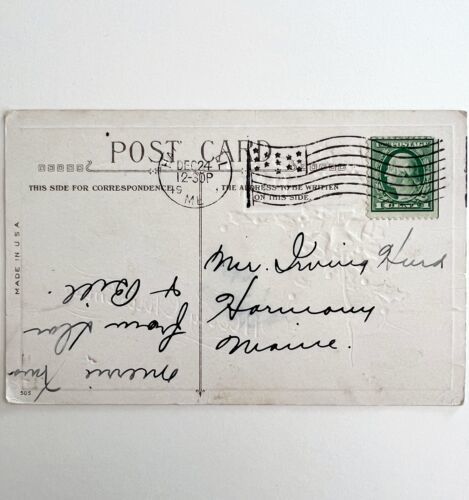 POST CARD
DEC 24
12-30P
19
ME.
POSTAGE
THIS SIDE FOR CORRESPONDENCE
THE ADDRESS TO BE WRITTEN
ON THIS SIDE.
MADE IN U.S.A.
Merrie
Xmas
from
& Bill.
Mr. Irving Hurd
Harmony
Maine.
505